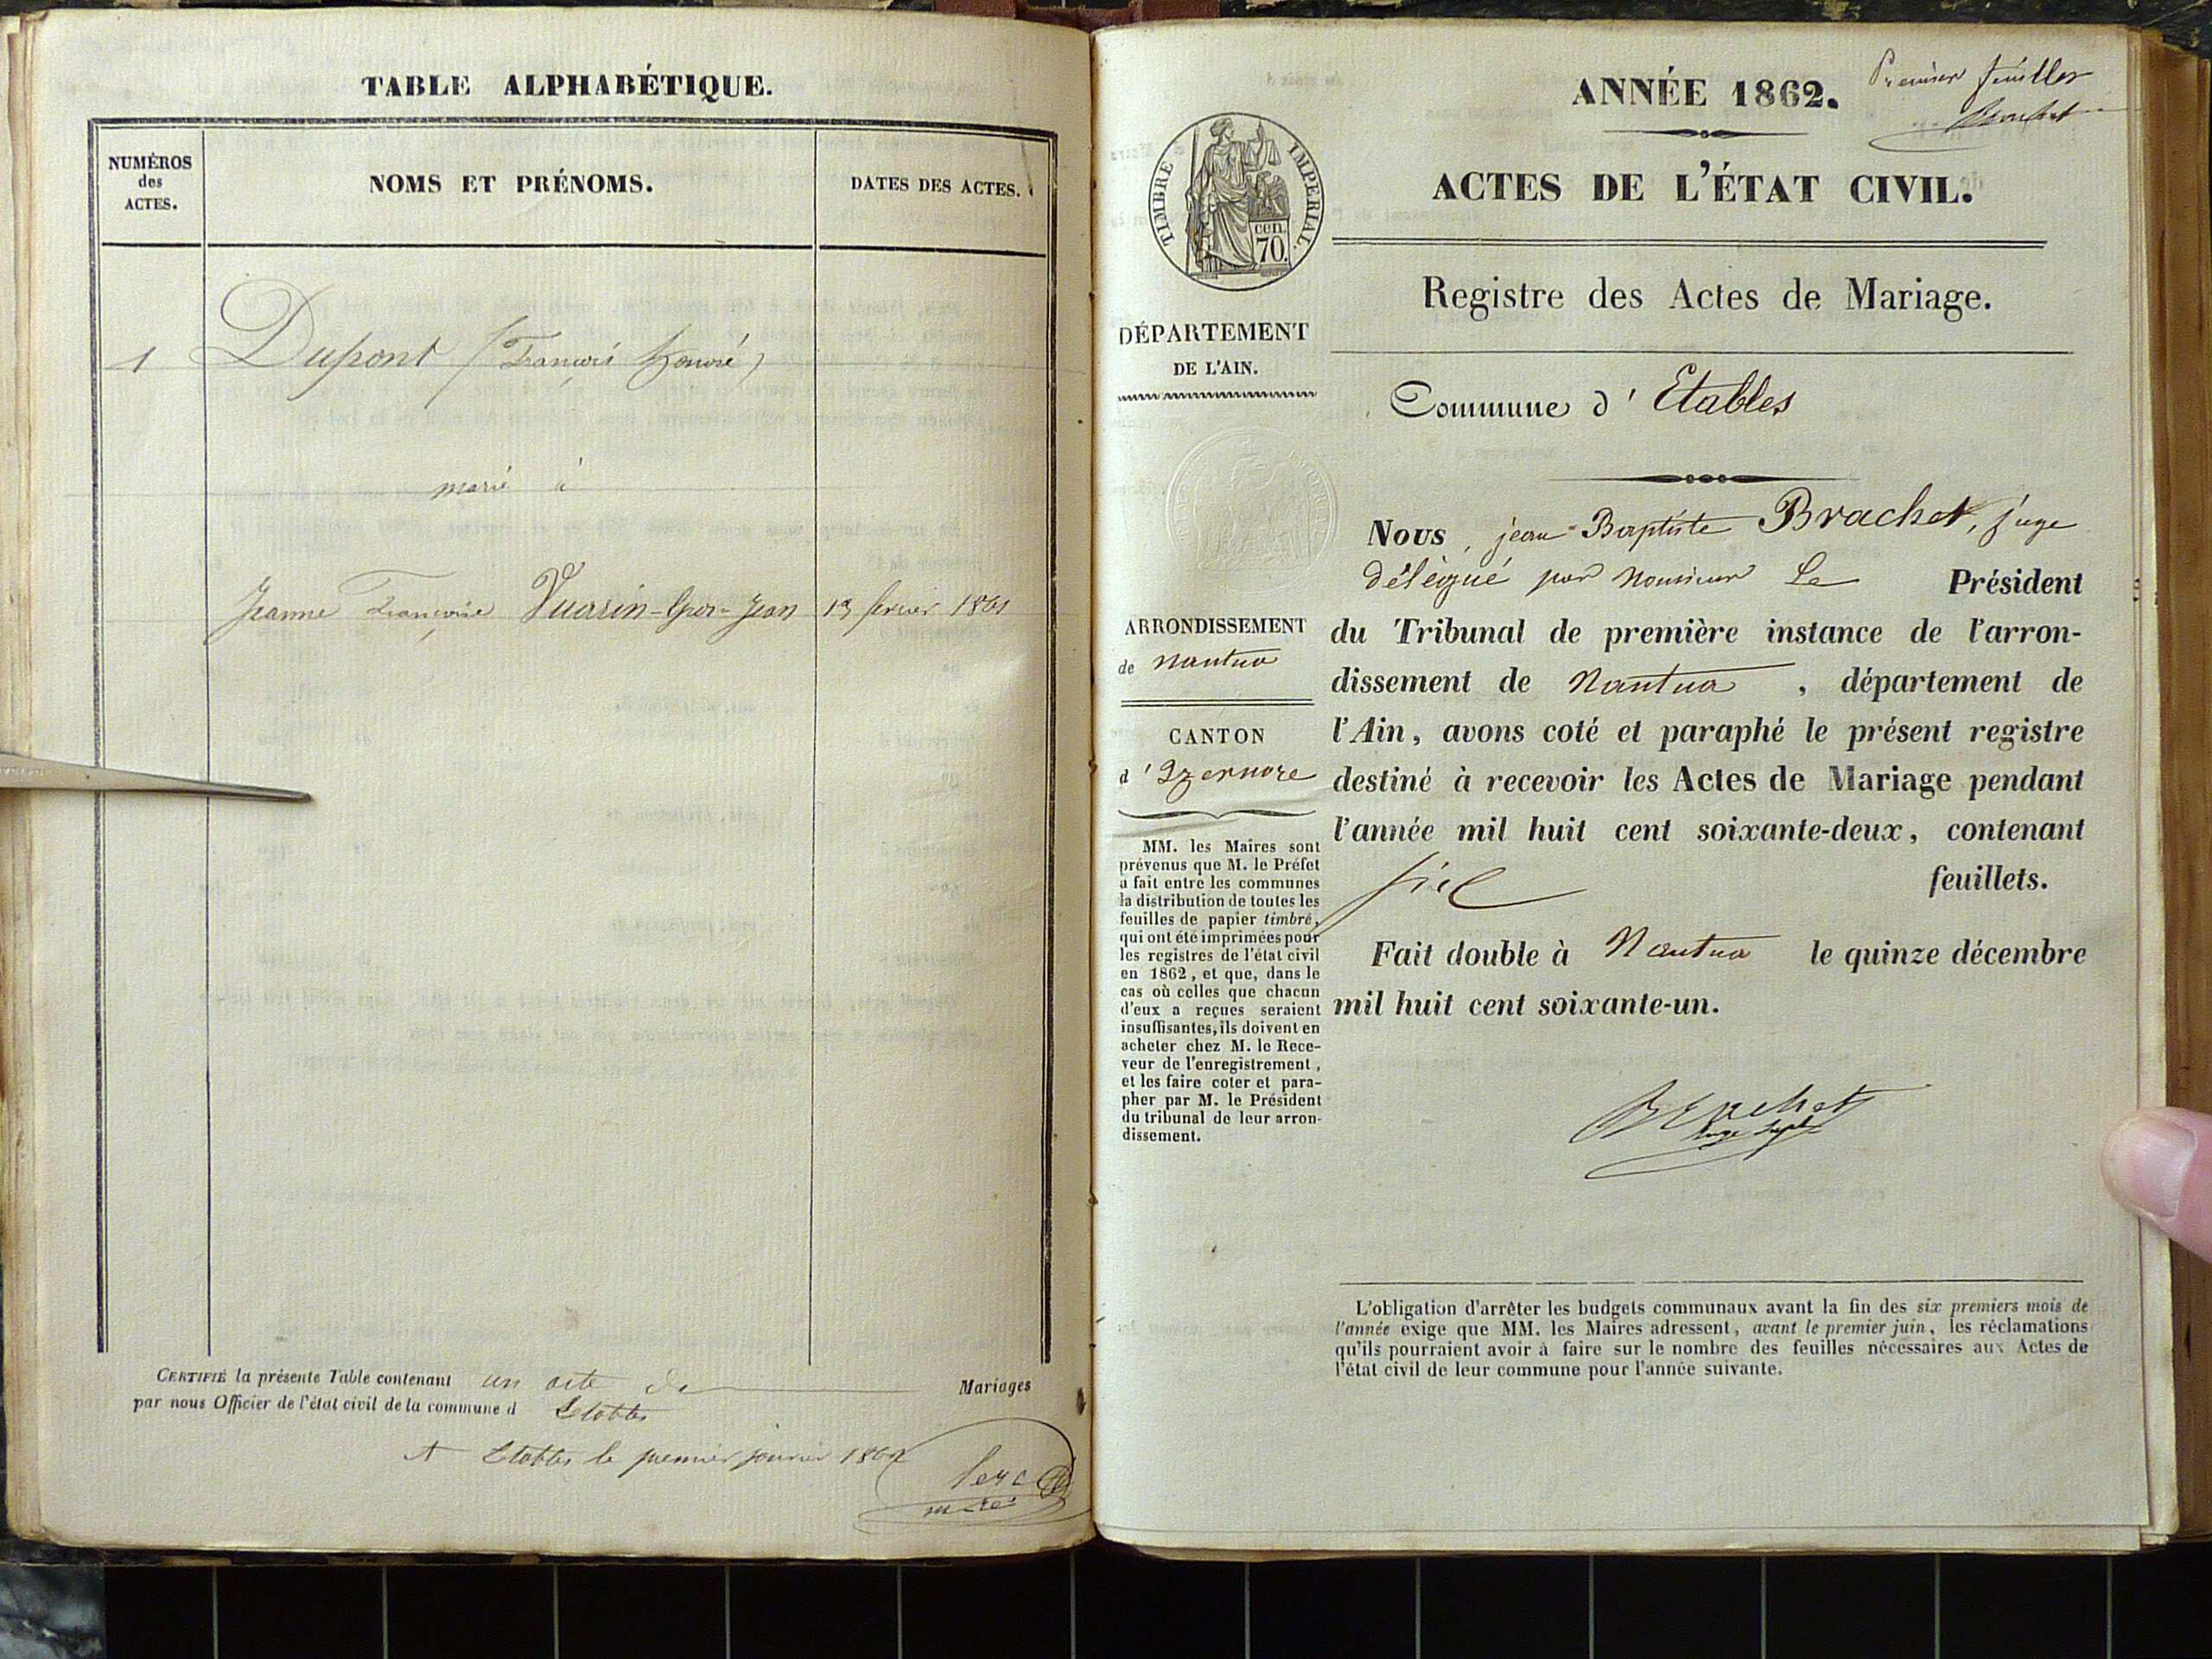 TABLE ALPHABÉTIQUE.
NUMÉROS
des
ACTES.
NOMS ET PRÉNOMS.
DATES DES ACTES.
1 Dupont (François honoré)
marié à
Jeanne Françoise Vuarin-Gros-Jean 13 fevrier 1861
CERTIFIÉ la présente Table contenant un acte de Mariages
par nous Officier de l'état civil de la commune d Etables
A Etables le premier janvier 1862
ANNÉE 1862.
Premier feuillet
Brachet
ACTES DE L'ÉTAT CIVIL.
TIMBRE IMPERIAL.
cen.
70.
Registre des Actes de Mariage.
DÉPARTEMENT
DE L'AIN.
Commune d' Etables
ARRONDISSEMENT
de Nantua
CANTON
d' Izernore
MM. les Maires sont
prévenus que M. le Préfet
a fait entre les communes
la distribution de toutes les
feuilles de papier timbré,
qui ont été imprimées pour
les registres de l'état civil
en 1862, et que, dans le
cas où celles que chacun
d'eux a reçues seraient
insuffisantes, ils doivent en
acheter chez M. le Rece-
veur de l'enregistrement,
et les faire coter et para-
pher par M. le Président
du tribunal de leur arron-
dissement.
Nous, jean-Baptiste Brachet, juge
délégué par Monsieur Le Président
du Tribunal de première instance de l'arron-
dissement de Nantua, département de
l'Ain, avons coté et paraphé le présent registre
destiné à recevoir les Actes de Mariage pendant
l'année mil huit cent soixante-deux, contenant
six feuillets.
Fait double à Nantua le quinze décembre
mil huit cent soixante-un.
Brachet
L'obligation d'arrêter les budgets communaux avant la fin des six premiers mois de
l'année exige que MM. les Maires adressent, avant le premier juin, les réclamations
qu'ils pourraient avoir à faire sur le nombre des feuilles nécessaires aux Actes de
l'état civil de leur commune pour l'année suivante.